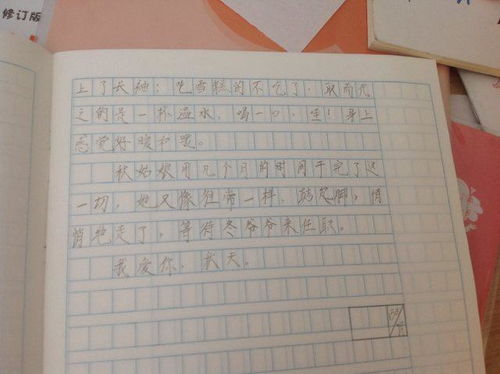 修订版
上了长袖；吃雪糕的不吃了，取而代
之的是一杯温水，喝一口，哇！身上
感觉好暖和哦。
秋姑娘用几个月的时间干完了这
一切，她又像往常一样，踮起脚，悄
悄地走了，等待冬爷爷来任职。
我爱你，秋天。